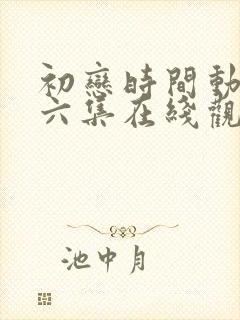 初戀時間動
六集在綫觀
池中月